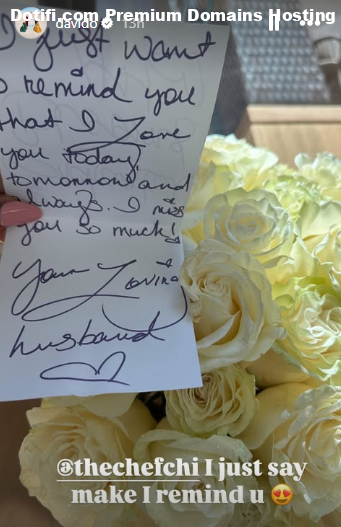 Dotifi.com Premium Domains Hosting
davido 13h
I just want
to remind you
that I Love
you today
tomorrow and
Always. I miss
you so much!
Your Loving
husband
@thechefchi I just say
make I remind u 😍